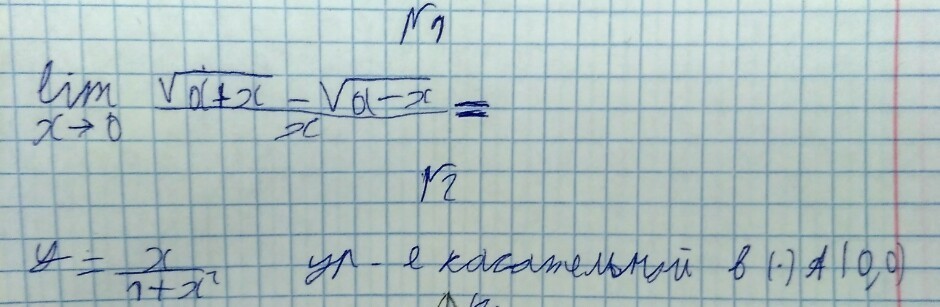 №1
lim x→0 (√(a+x) − √(a−x)) / x =
№2
y = x / (1+x²) ур-е касательной в (·) A(0,0)